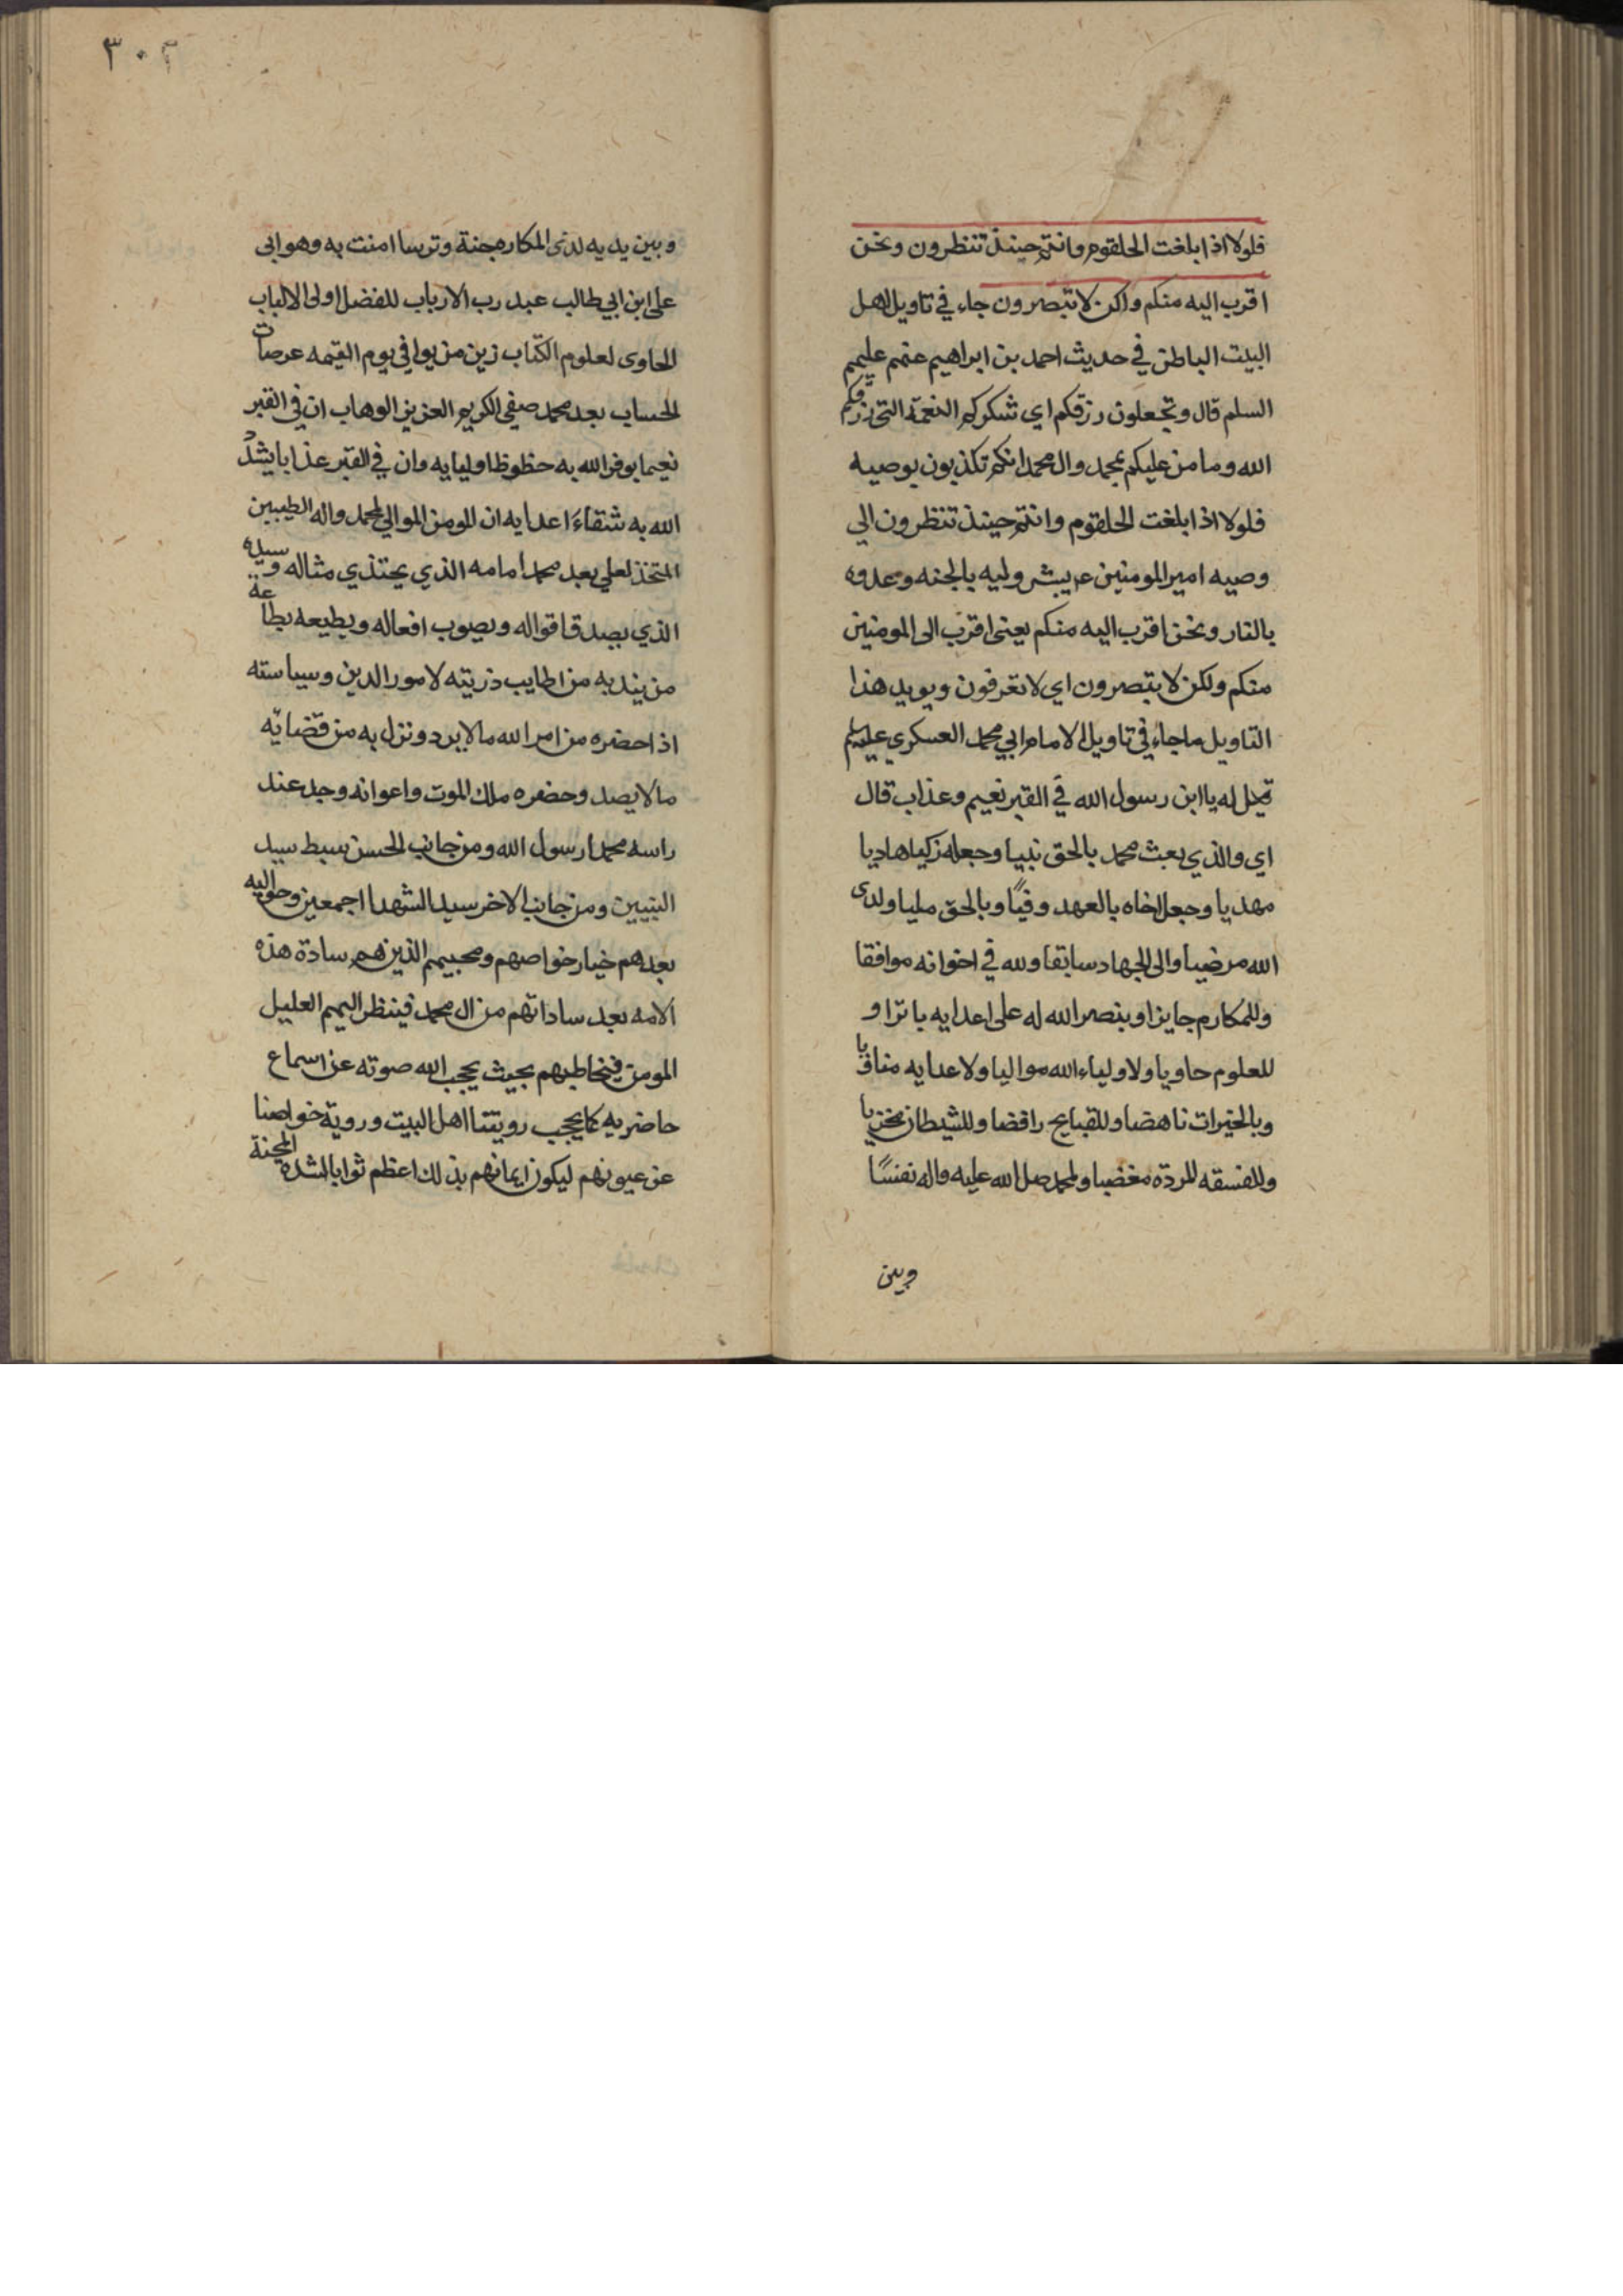 فلولا اذا بلغت الحلقوم وانتم حينئذ تنظرون ونحن
اقرب اليه منكم ولكن لا تبصرون جاء في تاويل اهل
البيت الباطن في حديث احمد بن ابراهيم عنهم عليهم
السلم قال وتجعلون رزقكم اي شكركم النعمة التي رزقكم
الله وما من عليكم بمحمد وال محمد انكم تكذبون بوصيه
فلولا اذا بلغت الحلقوم وانتم حينئذ تنظرون الي
وصيه امير المومنين ع يبشر وليه بالجنه وعدوه
بالنار ونحن اقرب اليه منكم يعني اقرب الى المومنين
منكم ولكن لا تبصرون اي لا تعرفون ويويد هذا
التاويل ما جاء في تاويل الامام ابي محمد العسكري عليه السلم
قيل له يا ابن رسول الله في القبر نعيم وعذاب قال
اي والذي بعث محمد بالحق نبيا وجعله زكيا هاديا
مهديا وجعل اخاه بالعهد وفيًا وبالحق مليا ولدى
الله مرضيا والى الجهاد سابقا ولله في اخوانه موافقا
وللمكارم جايزا وبنصر الله له على اعدايه باترا و
للعلوم حاويا ولاولياء الله مواليا ولاعدايه مناويا
وبالخيرات ناهضا وللقبايح رافضا وللشيطان مخزيا
وللفسقه المردة مغضبا ولمحمد صلى الله عليه واله نفسًا
وبين
٣٠٢
وبين يديه لدى المكاره جنة وترسا امنت به وهو ابي
على ابن ابي طالب عبد رب الارباب للفضل اولى الالباب
الحاوى لعلوم الكتاب زين من يوافي يوم القيمه عرصات
الحساب بعد محمد صفي الكريم العزيز الوهاب ان في القبر
نعيما يوفر الله به حظوظ اوليايه وان في القبر عذابا يشدّ
الله به شقاء اعدايه ان المومن الموالي لمحمد واله الطيبين
المتخذ لعلي بعد محمد امامه الذي يحتذي مثاله وسيده
الذي يصدق اقواله ويصوب افعاله ويطيعه بطاعة
من يندبه من اطايب ذريته لامور الدين وسياسته
اذا حضره من امر الله ما لا يرد ونزل به من قضايه
ما لا يصد وحضره ملك الموت واعوانه وجد عند
راسه محمدا رسول الله ومن جانب الحسن سبط سيد
النبيين ومن جانب الاخر سيد الشهدا اجمعين وحواليه
بعدهم خيار خواصهم ومحبيهم الذين هم سادة هذه
الامه بعد ساداتهم من ال محمد فينظر اليهم العليل
المومن فيخاطبهم بحيث يحجب الله صوته عن اسماع
حاضريه كما يحجب رويتنا اهل البيت وروية خواصنا
عن عيونهم ليكون ايمانهم بذلك اعظم ثوابا لشدة المحنة